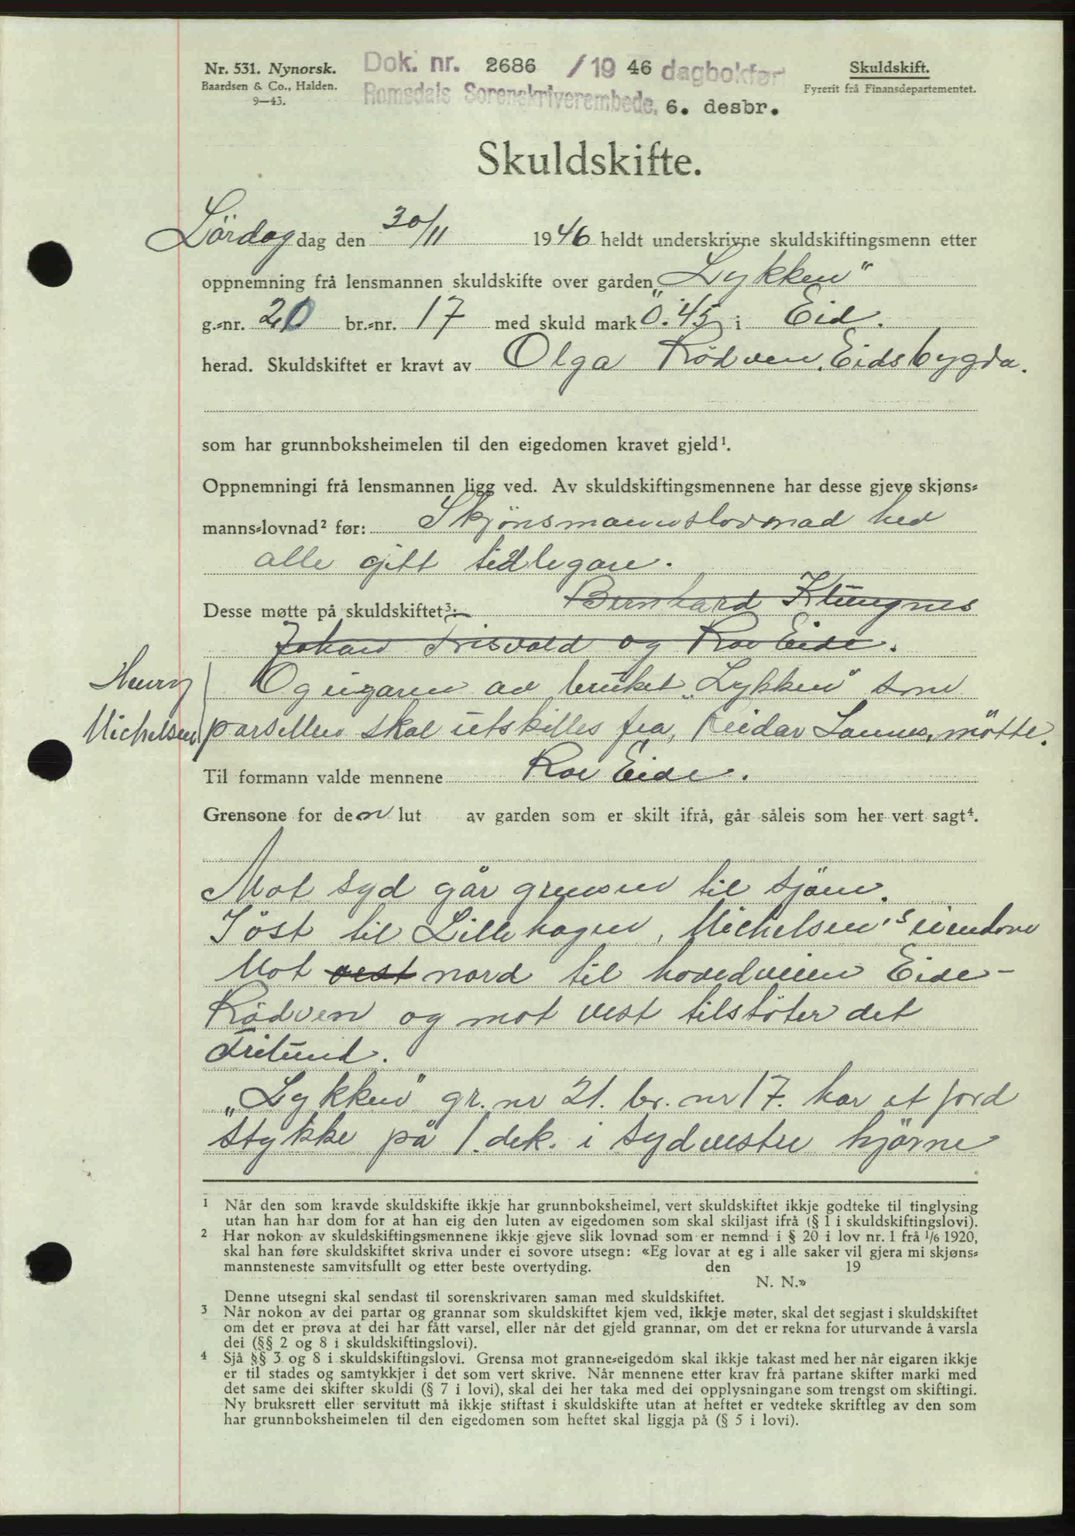 Nr. 531. Nynorsk.
Baardsen & Co., Halden.
9—43.
Dok. nr. 2686 /19 46 dagbokført
Romsdals Sorenskriverembede, 6. desbr.
Skuldskift.
Fyrerit frå Finansdepartementet.
Skuldskifte.
Lördag dag den 30/11 1946 heldt underskrivne skuldskiftingsmenn etter
oppnemning frå lensmannen skuldskifte over garden „Lykken"
g.-nr. 20 br.-nr. 17 med skuld mark 0.45 i Eid.
herad. Skuldskiftet er kravt av Olga Rödven. Eidsbygda.
som har grunnboksheimelen til den eigedomen kravet gjeld¹.
Oppnemningi frå lensmannen ligg ved. Av skuldskiftingsmennene har desse gjeve skjøns-
manns-lovnad² før: Skjönsmannslovnad hed
alle gitt tidlegare.
Desse møtte på skuldskiftet³: Bernhard Klungnes
Johan Frisvold og Roe Eide.
Henry
Og eigaren av bruket „Lykken" som
Michelsen
parsellen skal utskilles fra, Reidar Sannes, mötte.
Til formann valde mennene Roe Eide.
Grensone for den lut av garden som er skilt ifrå, går såleis som her vert sagt⁴.
Mot syd går grensen til sjöen.
I öst til Lillehagen, Michelsen's eiendom
Mot vest nord til hovedveien Eide-
Rödven og mot vest tilstöter det
Frilund.
„Lykken" gr. nr 21. br. nr 17. har et jord
stykke på 1. dek. i sydvestre hjörne
¹ Når den som kravde skuldskifte ikkje har grunnboksheimel, vert skuldskiftet ikkje godteke til tinglysing
utan han har dom for at han eig den luten av eigedomen som skal skiljast ifrå (§ 1 i skuldskiftingslovi).
² Har nokon av skuldskiftingsmennene ikkje gjeve slik lovnad som er nemnd i § 20 i lov nr. 1 frå 1/6 1920,
skal han føre skuldskiftet skriva under ei sovore utsegn: «Eg lovar at eg i alle saker vil gjera mi skjøns-
mannsteneste samvitsfullt og etter beste overtyding. den 19
N. N.»
Denne utsegni skal sendast til sorenskrivaren saman med skuldskiftet.
³ Når nokon av dei partar og grannar som skuldskiftet kjem ved, ikkje møter, skal det segjast i skuldskiftet
om det er prøva at dei har fått varsel, eller når det gjeld grannar, om det er rekna for uturvande å varsla
dei (§§ 2 og 8 i skuldskiftingslovi).
⁴ Sjå §§ 3 og 8 i skuldskiftingslovi. Grensa mot granne-eigedom skal ikkje takast med her når eigaren ikkje
er til stades og samtykkjer i det som vert skrive. Når mennene etter krav frå partane skifter marki med
det same dei skifter skuldi (§ 7 i lovi), skal dei her taka med dei opplysningane som trengst om skiftingi.
Ny bruksrett eller servitutt må ikkje stiftast i skuldskifte utan at heftet er vedteke skriftleg av den som
har grunnboksheimelen til den eigedomen som heftet skal liggja på (§ 5 i lovi).